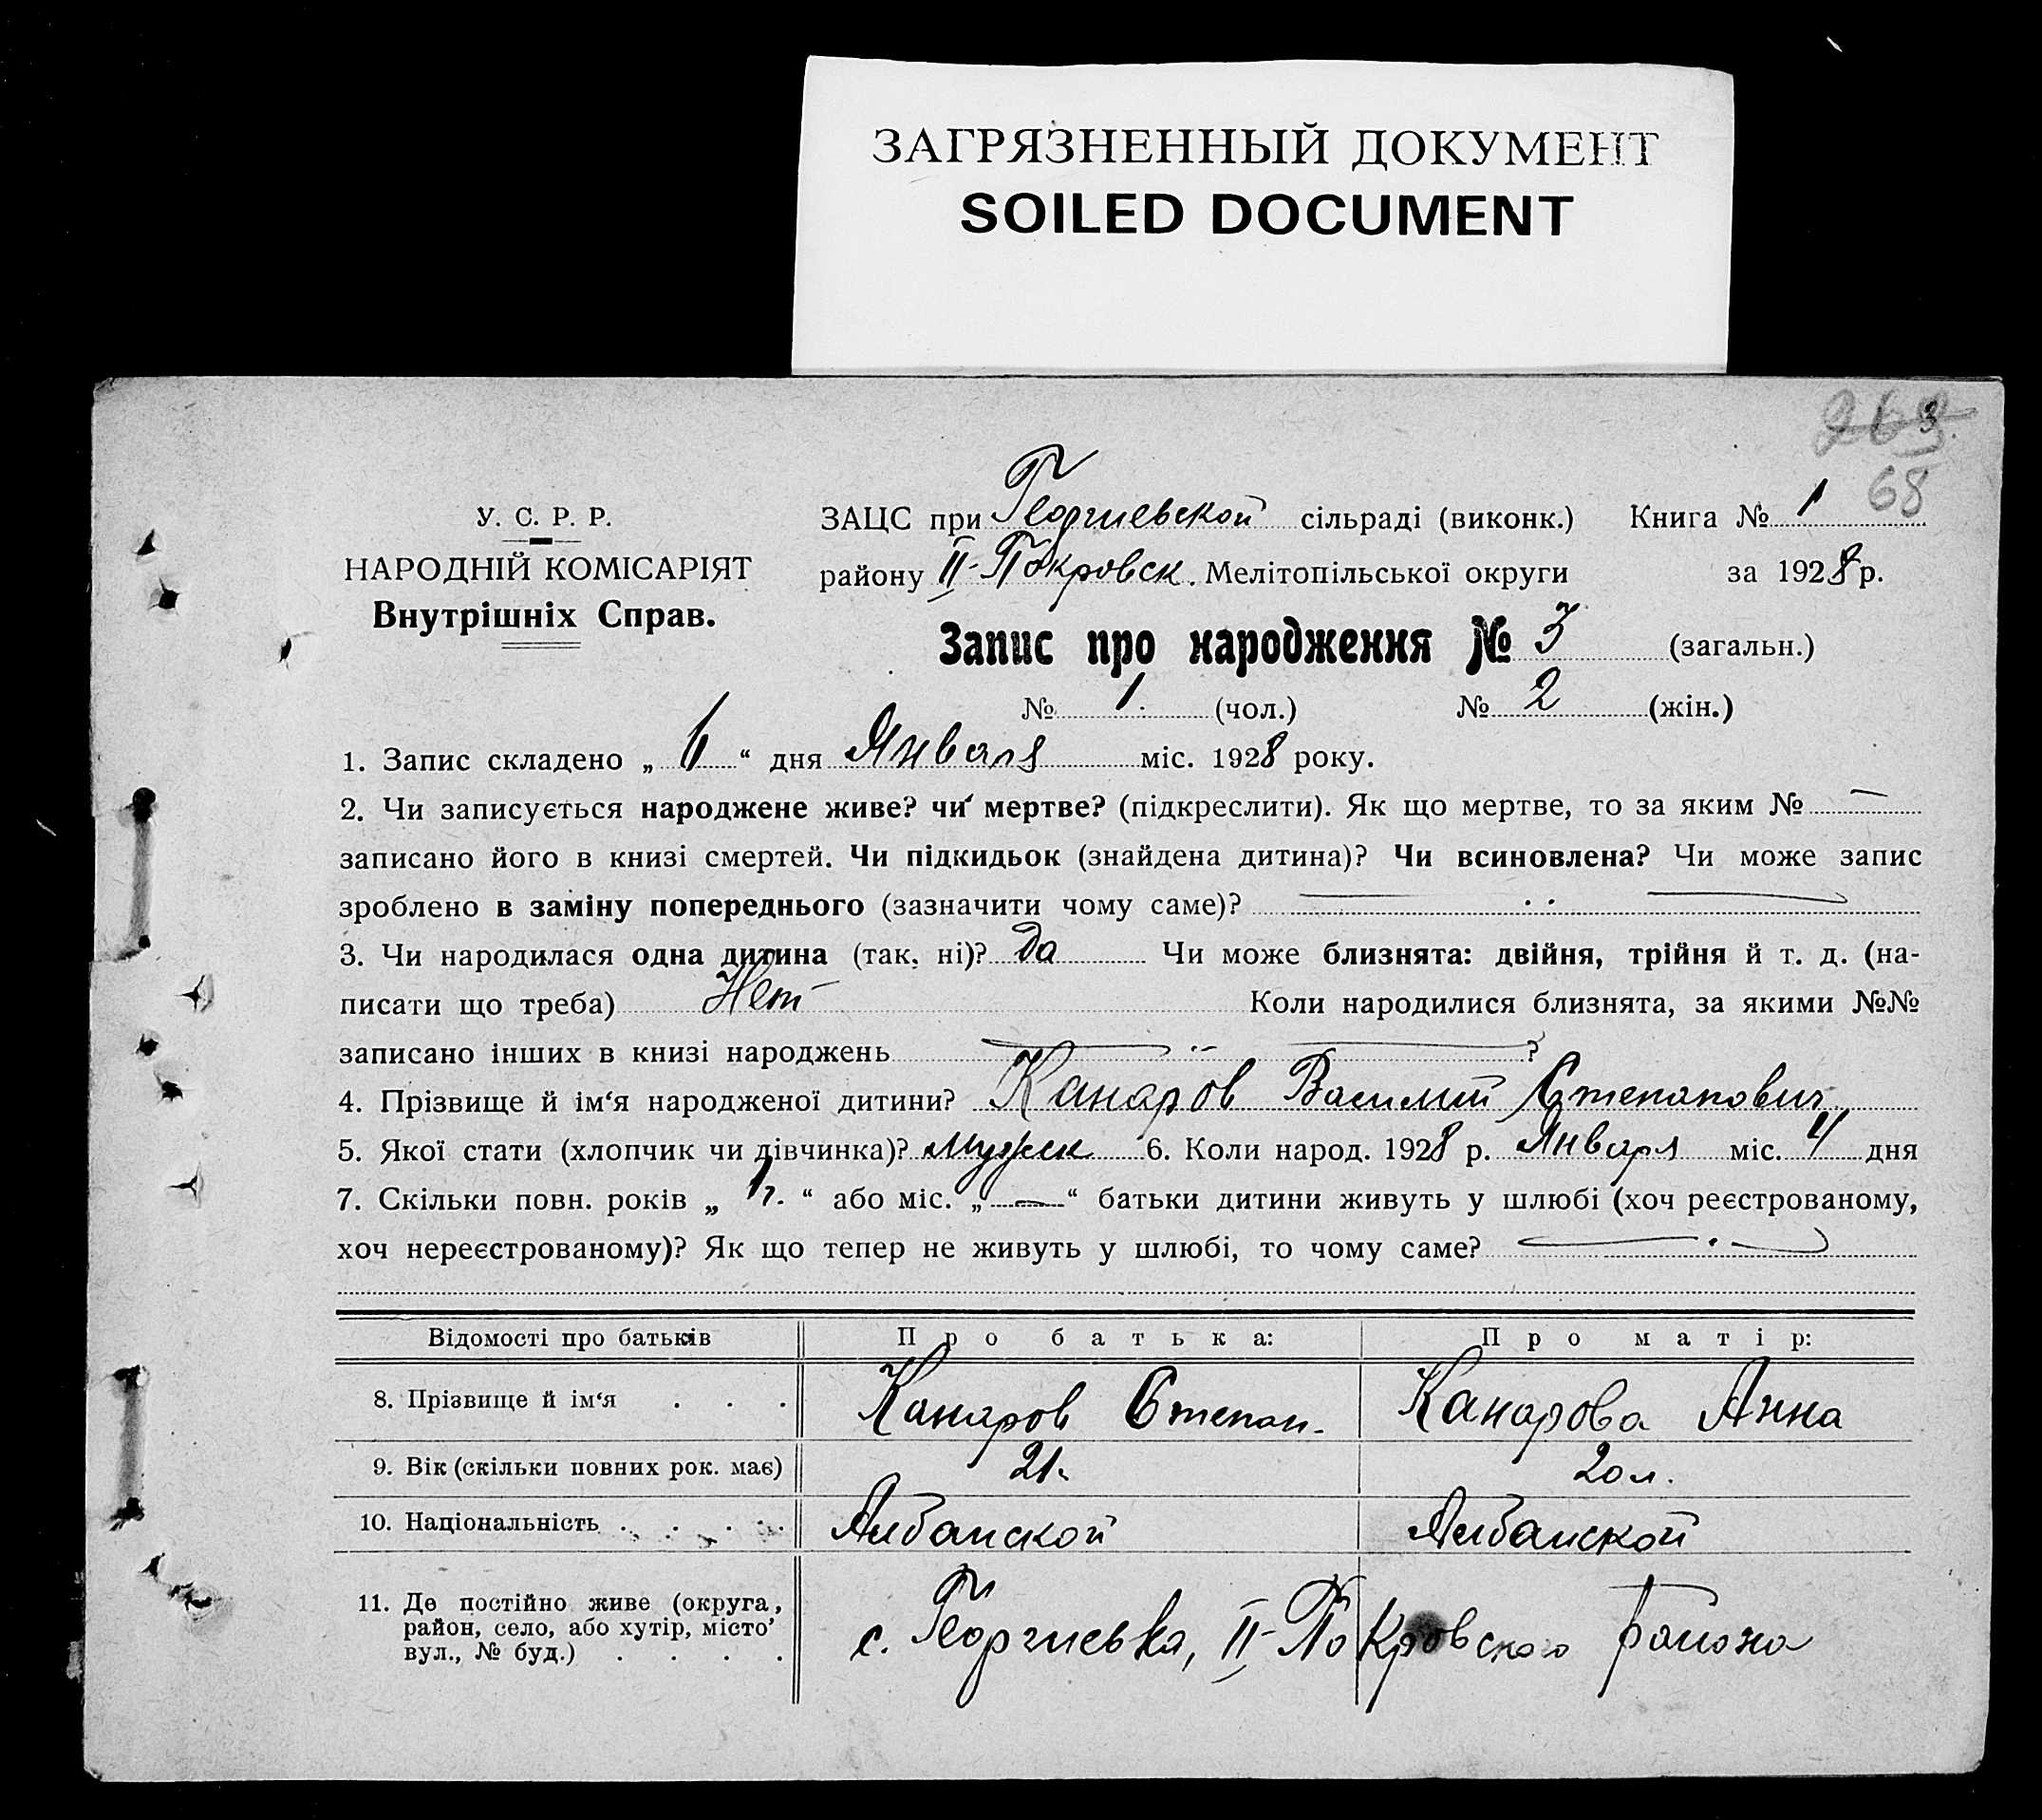 ЗАГРЯЗНЕННЫЙ ДОКУМЕНТ
SOILED DOCUMENT
68
У. С. Р. Р.
НАРОДНІЙ КОМІСАРІЯТ
Внутрішніх Справ.
ЗАЦС при Георгиевской сільраді (виконк.) Книга № 1
району II-Покровск. Мелітопільської округи за 1928 р.
Запис про народження № 3 (загальн.)
№ 1. (чол.) № 2 (жін.)
1. Запис складено „ 6 “ дня Января міс. 1928 року.
2. Чи записується народжене живе? чи мертве? (підкреслити). Як що мертве, то за яким № —
записано його в книзі смертей. Чи підкидьок (знайдена дитина)? Чи всиновлена? Чи може запис
зроблено в заміну попереднього (зазначити чому саме)?
3. Чи народилася одна дитина (так, ні)? Да Чи може близнята: двійня, трійня й т. д. (на-
писати що треба) Нет Коли народилися близнята, за якими №№
записано інших в книзі народжень ?
4. Прізвище й ім‘я народженої дитини? Канаров Василий Степанович
5. Якої стати (хлопчик чи дівчинка)? мужск 6. Коли народ. 1928 р. Января міс. 4 дня
7. Скільки повн. років „ 1 г. “ або міс. „ — “ батьки дитини живуть у шлюбі (хоч реєстрованому,
хоч нереєстрованому)? Як що тепер не живуть у шлюбі, то чому саме?
Відомості про батьків Про батька: Про матір:
8. Прізвище й ім‘я . . . Канаров Степан. Канарова Анна
9. Вік (скільки повних рок. має) 21. 20 л.
10. Національність . . . . Албанской Албанской
11. Де постійно живе (округа,
район, село, або хутір, місто’
вул., № буд.) . . . . с. Георгиевка, II-Покровского района